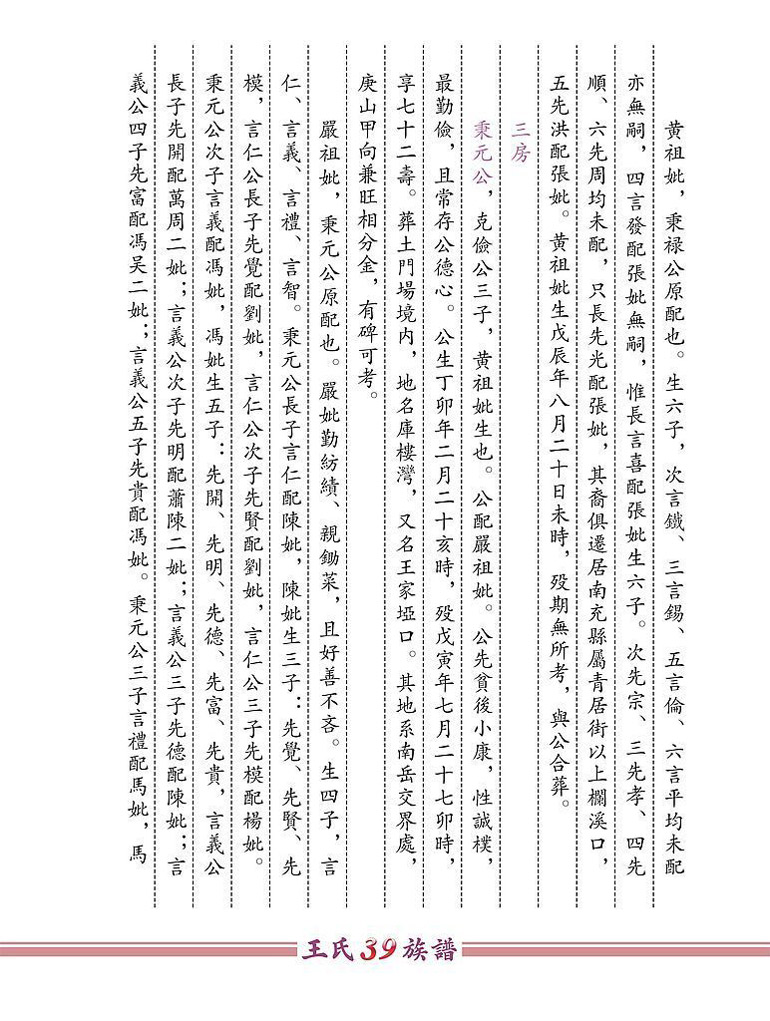 黄祖妣，秉禄公原配也。生六子，次言鐵、三言錫、五言倫、六言平均未配
亦無嗣，四言發配張妣無嗣，惟長言喜配張妣生六子。次先宗、三先孝、四先
順、六先周均未配，只長先光配張妣，其裔俱遷居南充縣屬青居街以上欄溪口，
五先洪配張妣。黄祖妣生戊辰年八月二十日未時，殁期無所考，與公合葬。
三房
秉元公，克儉公三子，黄祖妣生也。公配嚴祖妣。公先貧後小康，性誠樸，
最勤儉，且常存公德心。公生丁卯年二月二十亥時，殁戊寅年七月二十七卯時，
享七十二壽。葬土門場境内，地名庫樓灣，又名王家埡口。其地系南岳交界處，
庚山甲向兼旺相分金，有碑可考。
嚴祖妣，秉元公原配也。嚴妣勤紡績、親鋤菜，且好善不吝。生四子，言
仁、言義、言禮、言智。秉元公長子言仁配陳妣，陳妣生三子：先覺、先賢、先
模，言仁公長子先覺配劉妣，言仁公次子先賢配劉妣，言仁公三子先模配楊妣。
秉元公次子言義配馮妣，馮妣生五子：先開、先明、先德、先富、先貴，言義公
長子先開配萬周二妣；言義公次子先明配蕭陳二妣；言義公三子先德配陳妣；言
義公四子先富配馮吴二妣；言義公五子先貴配馮妣。秉元公三子言禮配馬妣，馬
王氏39族譜